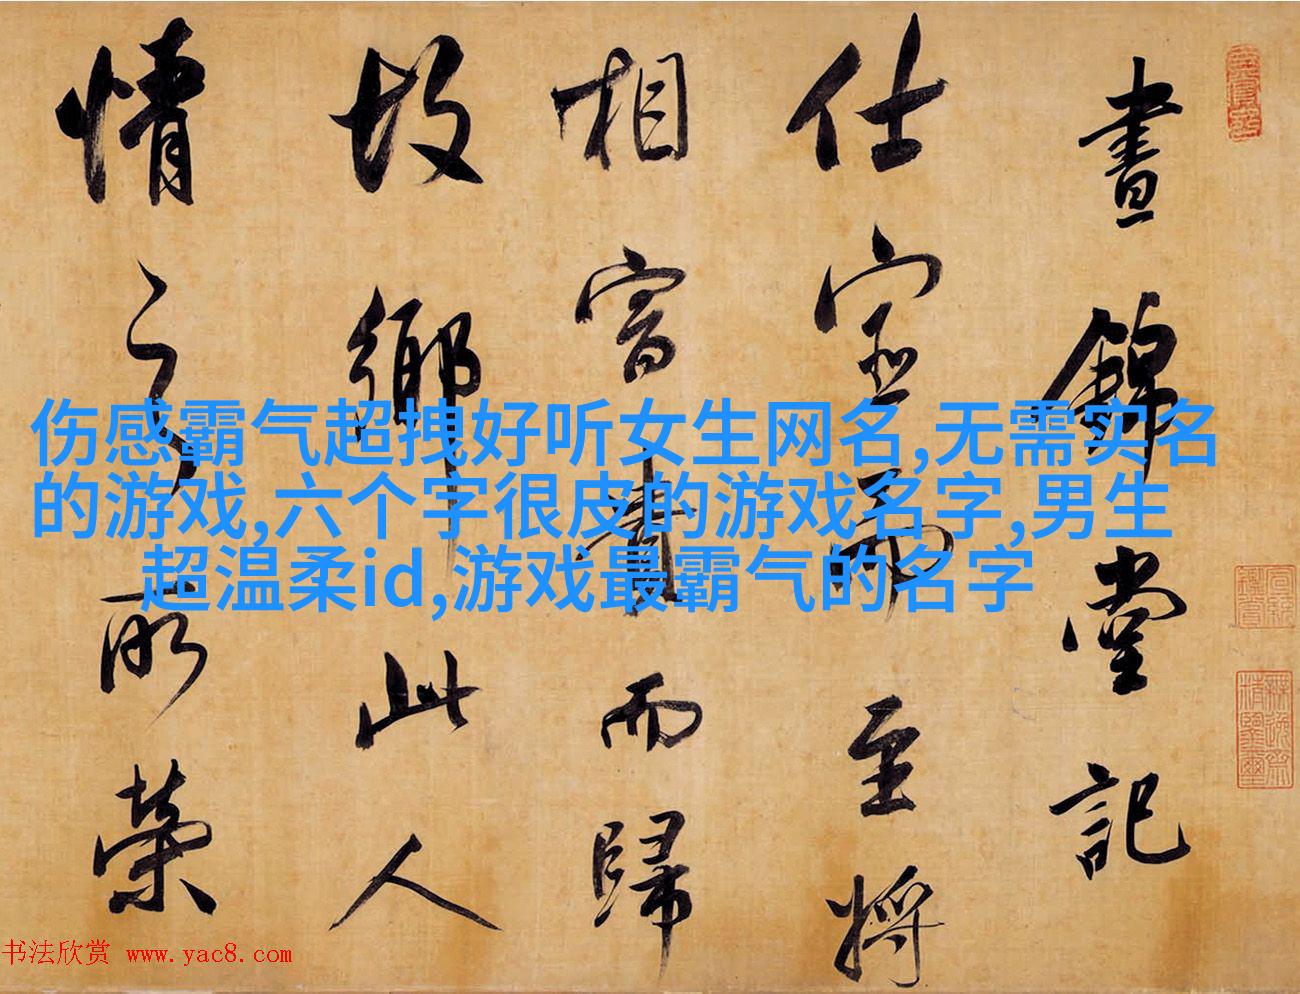 晝錦堂記
仕宦而至將
相富貴而歸
故鄉此人
情之所榮
伤感霸气超拽好听女生网名,无需实名
的游戏,六个字很皮的游戏名字,男生
超温柔id,游戏最霸气的名字
书法欣赏 www.yac8.com